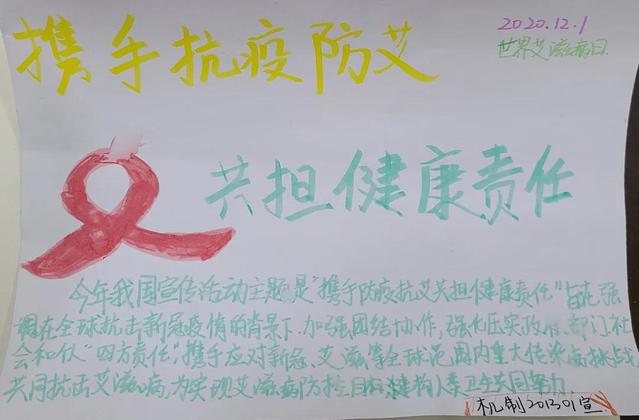 携手抗疫防艾
2020.12.1
世界艾滋病日
共担健康责任
今年我国宣传活动主题是"携手防疫抗艾共担健康责任"旨在强
调在全球抗击新冠疫情的背景下.加强团结协作,强化压实政府.部门.社
会和 "四方责任",携手应对新冠、艾滋等全球范围内重大传染病挑战
共同抗击艾滋病,为实现艾滋病防控目标, 人类卫生共同 努力.
机制201301宣